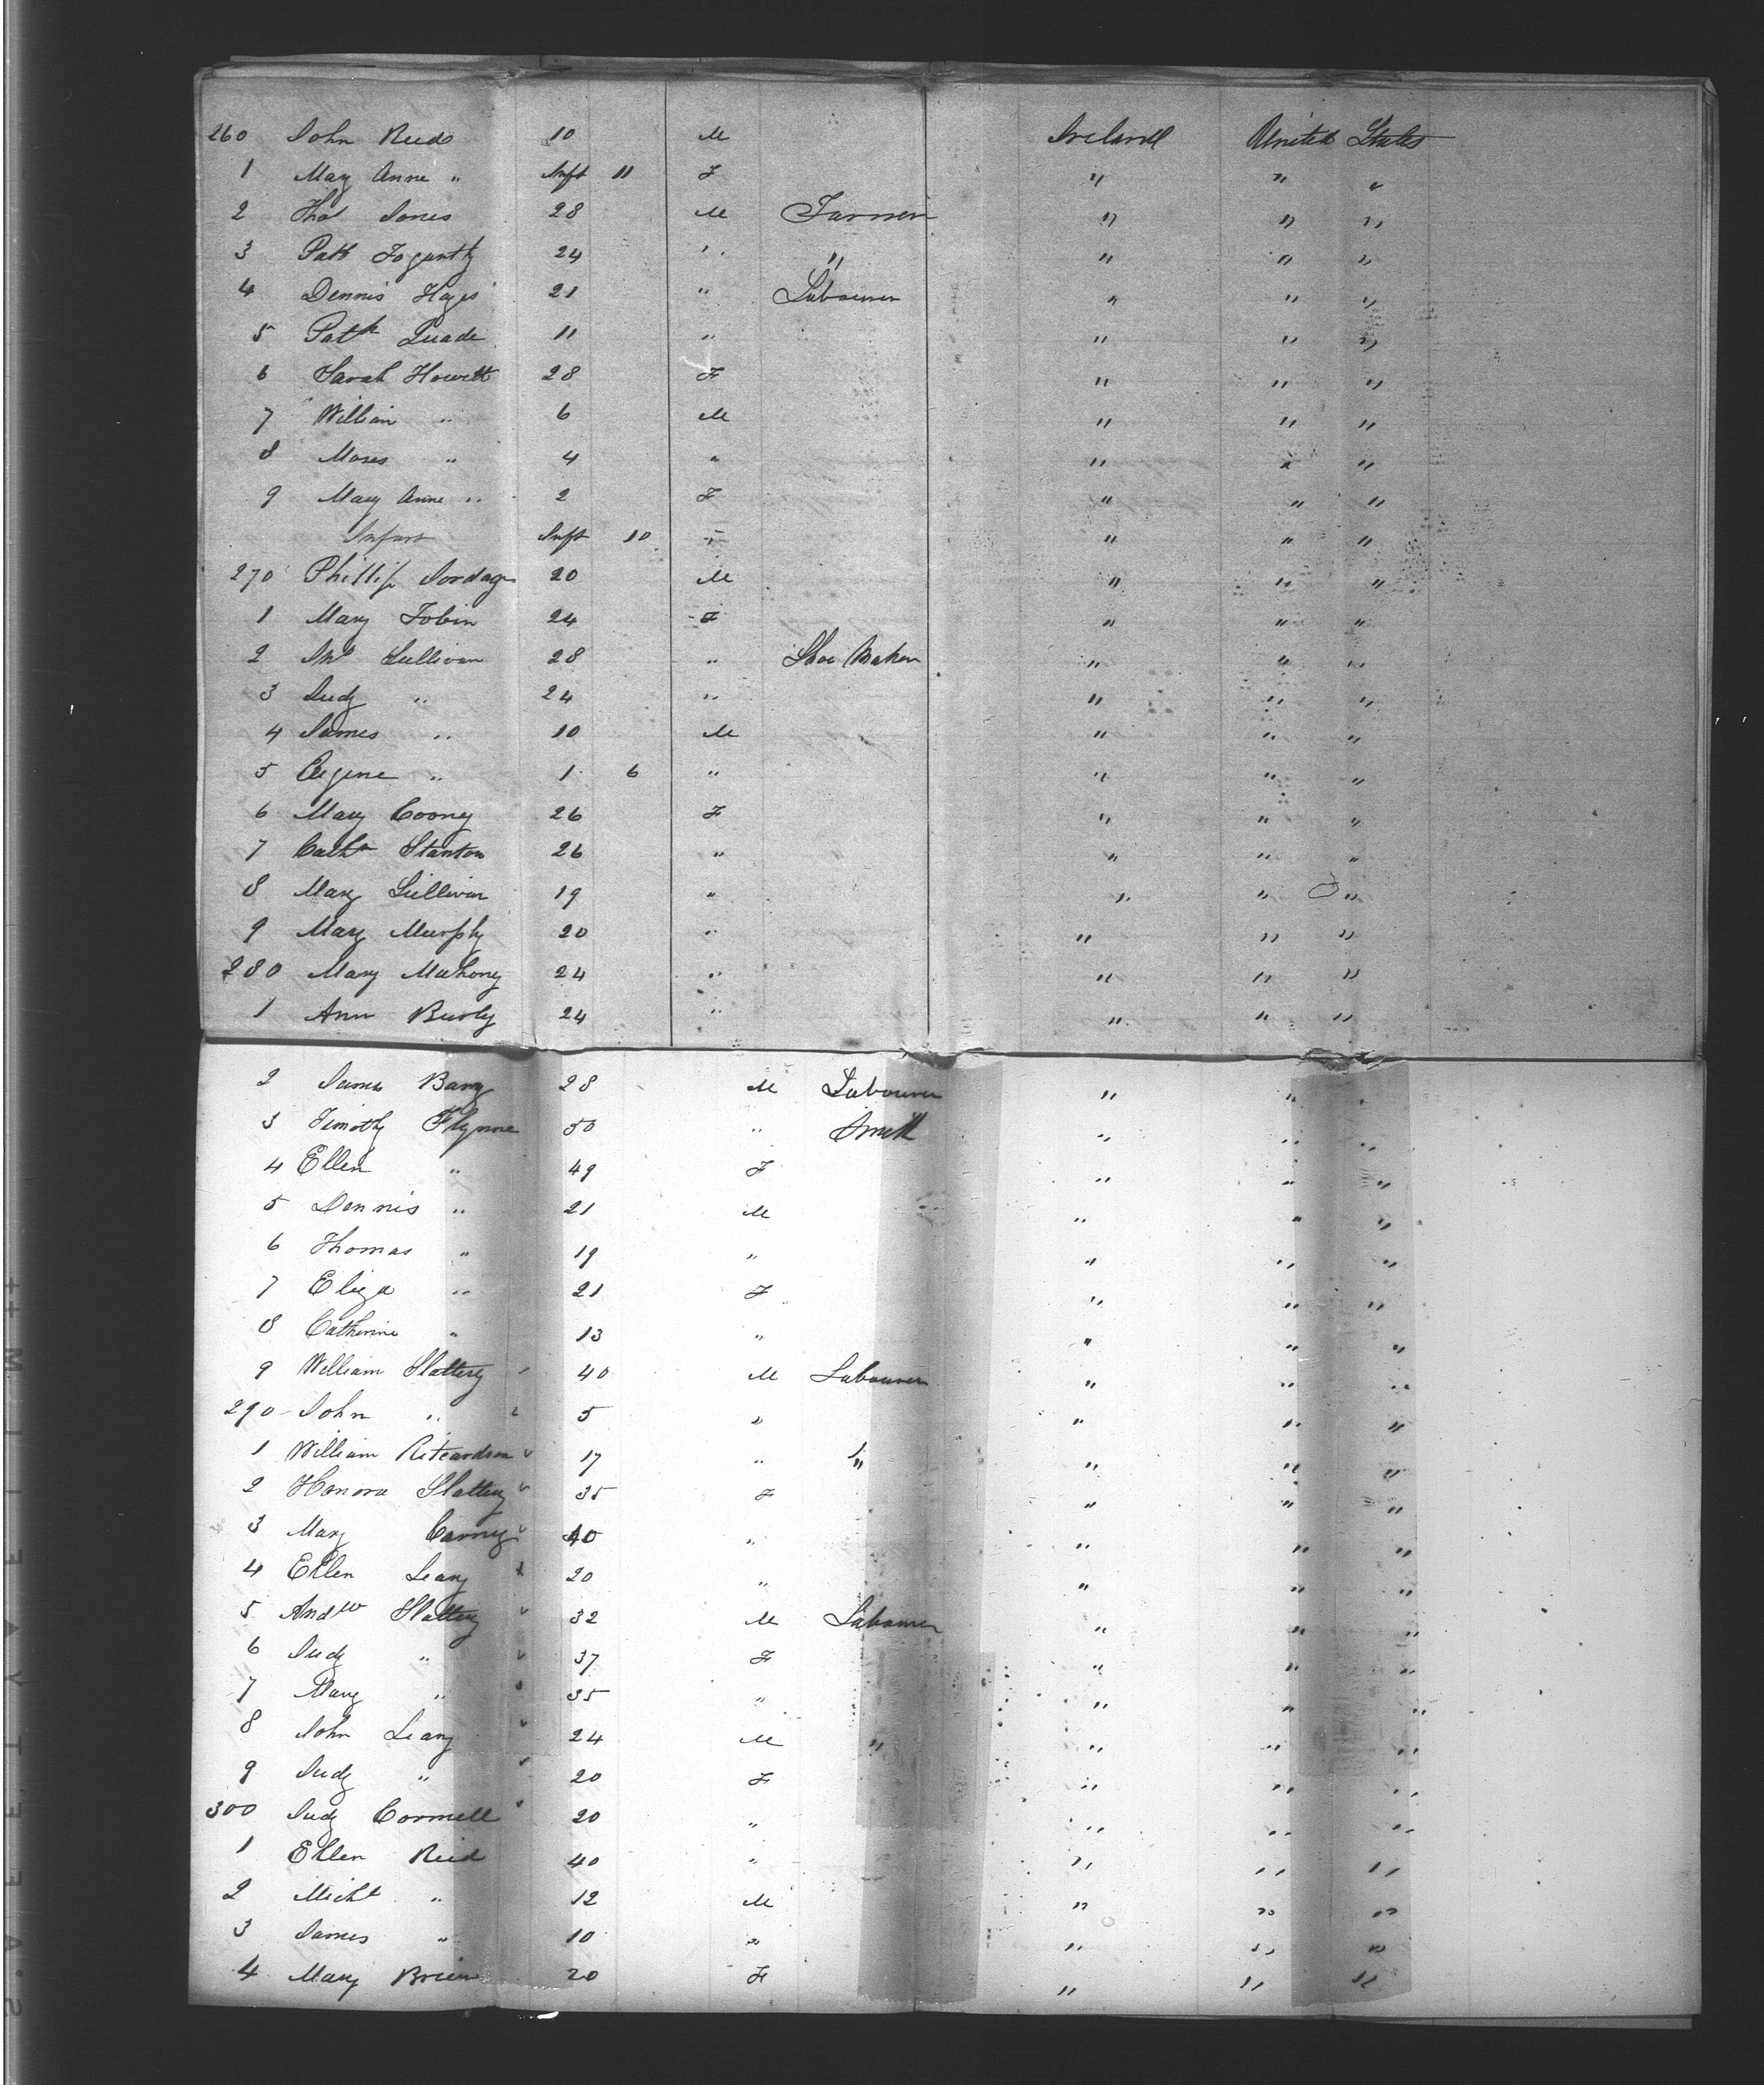 260 John Reids 10 M Ireland United States
1 Mary Anne " Inft 11 F " " "
2 Thos Jones 28 M Farmer " " "
3 Patk Fogarty 24 " " " " "
4 Dennis Hayes 21 " Labourer " " "
5 Patk Quade 11 " " " "
6 Sarah Howett 28 F " " "
7 William " 6 M " " "
8 Moses " 4 " " " "
9 Mary Anne " 2 F " " "
Infant Inft 10 F " " "
270 Phillip 20 M " " "
1 Mary Tobin 24 F " " "
2 Sullivan 28 " Shoe Maker " " "
3 Judy " 24 " " " "
4 James " 10 M " " "
5 " 1 6 " " " "
6 Mary Cooney 26 F " " "
7 Cathn Stanton 26 " " " "
8 Mary Sullivan 19 " " " "
9 Mary Murphy 20 " " " "
280 Mary Mahony 24 " " " "
1 Ann 24 " " " "
2 James Barry 28 M Labourer " " "
3 Timothy Flynne 50 " Smith " " "
4 Ellen " 49 F " " "
5 Dennis " 21 M " " "
6 Thomas " 19 " " " "
7 Eliza " 21 F " " "
8 Catherine " 13 " " " "
9 William Slattery 40 M Labourer " " "
290 John " 5 " " " "
1 William Ritcardson 17 " " " " "
2 Honora Slattery 35 F " " "
3 Mary Carney 40 " " " "
4 Ellen Leary 20 " " " "
5 Andw Slattery 32 M Labourer " " "
6 Judy " 37 F " " "
7 Mary " 35 " " " "
8 John Leary 24 M " " " "
9 Judy " 20 F " " "
300 Judy Connell 20 " " " "
1 Ellen Reid 40 " " " "
2 Michl " 12 M " " "
3 James " 10 " " " "
4 Mary Brien 20 F " " "